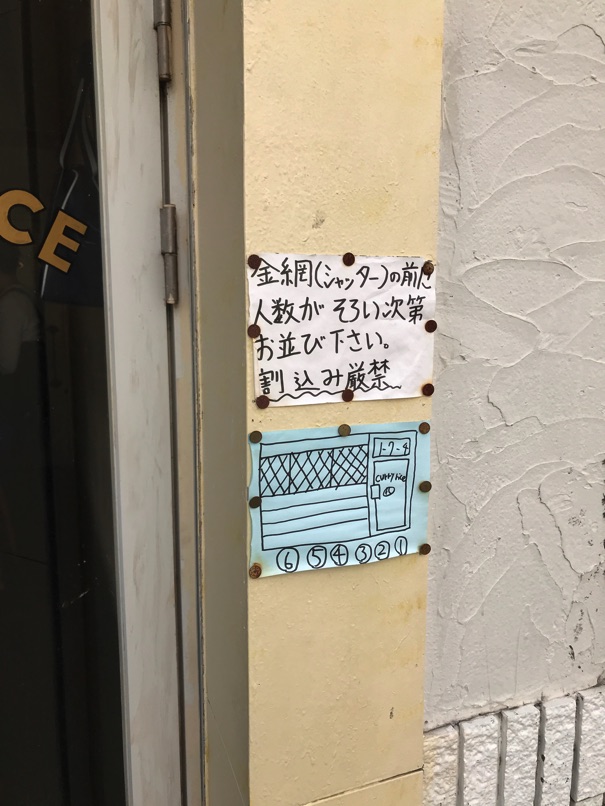 CE
金網(シャッター)の前に
人数が そろい次第
お並び下さい。
割込み厳禁
1-7-4
⑥ ⑤ ④ ③ ② ①